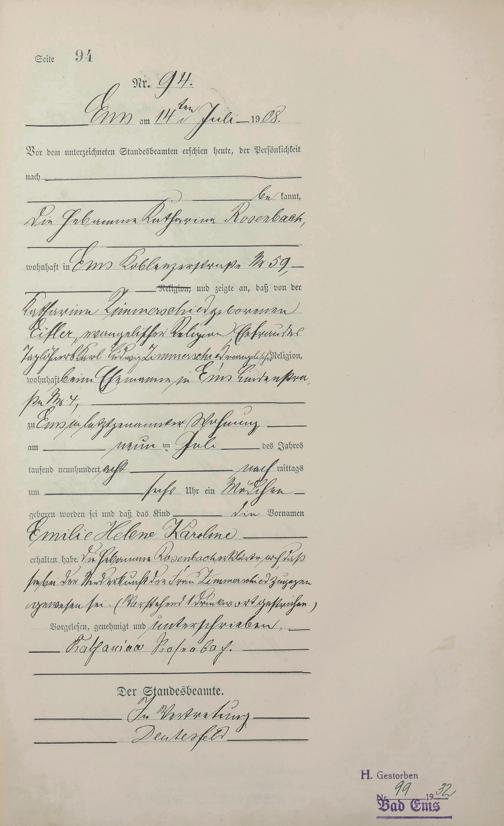 Seite 94
Nr. 94.
Ems am 14ten Juli 1908.
Vor dem unterzeichneten Standesbeamten erschien heute, der Persönlichkeit
nach
be kannt,
die Hebamme Katharina Rosenbach,
wohnhaft in Ems Koblenzerstraße No 59,
Religion, und zeigte an, daß von der
Katharina Zimmerschied geborenen
Eifler, evangelischer Religion Ehefrau des
Taglöhners Karl Ludwig Zimmerschied evangelisch Religion,
wohnhaft beim Ehemanne, in Ems Lindenstra,
ße No 4,
zu Ems in letztgenannter Wohnung
am neun ten Juli des Jahres
tausend neunhundert acht nach mittags
um sechs Uhr ein Mädchen
geboren worden sei und daß das Kind die Vornamen
Emilie Helene Karoline
erhalten habe. Die Hebamme Rosenbach erklärte, daß
sie bei der Niederkunft der Frau Zimmerschied zugegen
gewesen sei. (Vorstehend 1 Druckwort gestrichen.)
Vorgelesen, genehmigt und unterschrieben.
Katharina Rosenbach.
Der Standesbeamte.
In Vertretung
H. Gestorben
Nr. 99 1932
Bad Ems